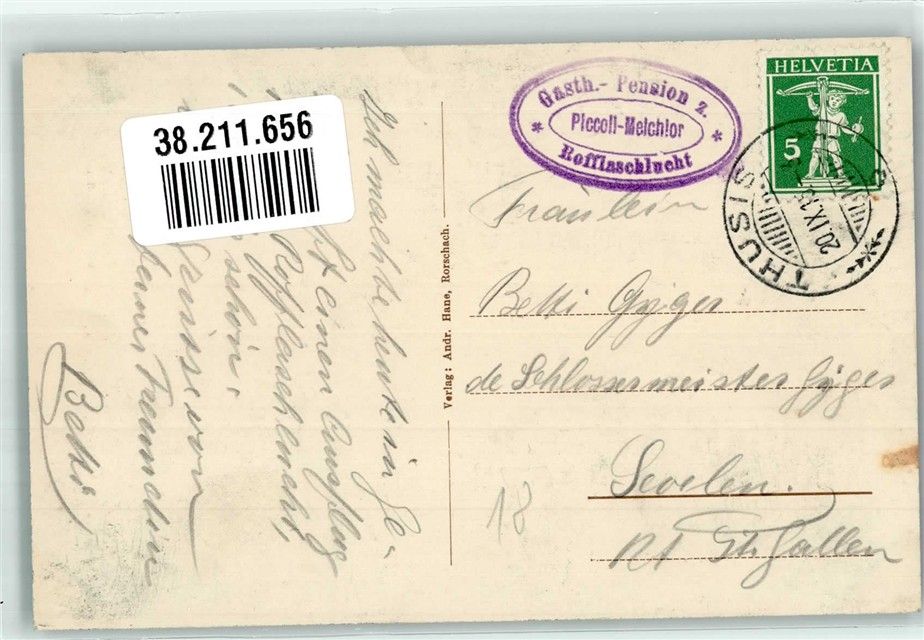 38.211.656
Ich machte heute in Ge-
einen Ausflug
Rofflaschlucht,
schön.
Grüsse von
deiner Freundin
Betti
Verlag: Andr. Hane, Rorschach.
Gasth.- Pension z.
Piccoli-Melchior
* Rofflaschlucht *
HELVETIA
5
THUSIS
20.IX.
Fräulein
Betti Gyger
de Schlossermeister Gyger
Sevelen.
Kt St. Gallen
18